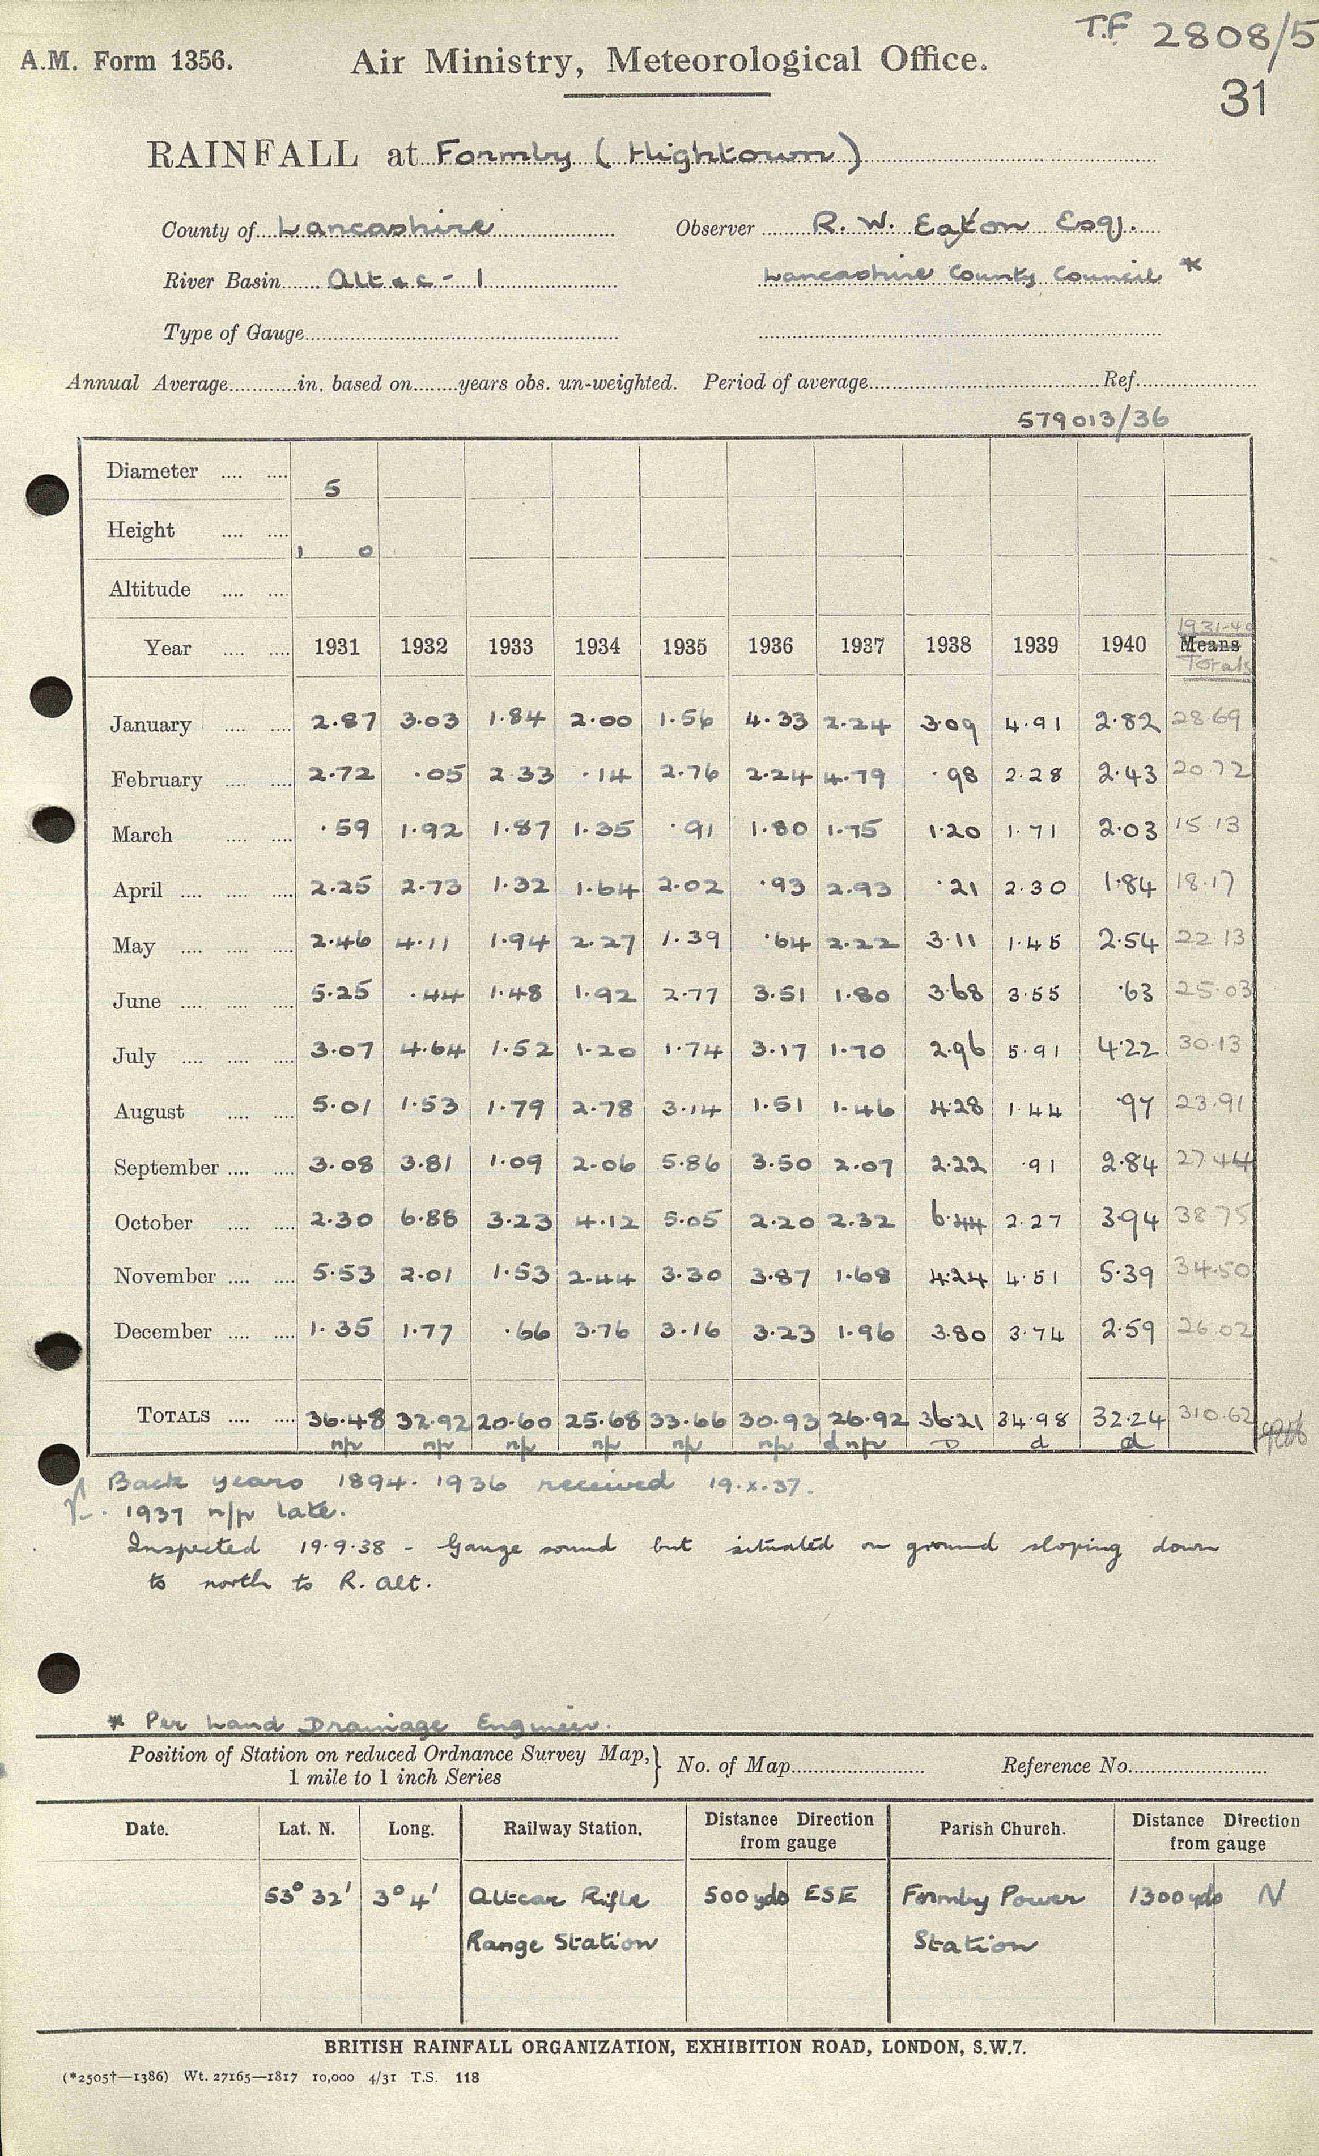 T.F 2808/5
A.M. Form 1356. Air Ministry, Meteorological Office.
31
RAINFALL at Formby (Hightown)
County of Lancashire Observer R. W. Eaton Esq.
River Basin Alt &c - 1 Lancashire County Council *
Type of Gauge
Annual Average in. based on years obs. un-weighted. Period of average Ref.
579013/36
Diameter 5
Height 1 0
Altitude
1931-40
Year 1931 1932 1933 1934 1935 1936 1937 1938 1939 1940 Means
Totals
January 2.87 3.03 1.84 2.00 1.56 4.33 2.24 3.09 4.91 2.82 28.69
February 2.72 .05 2.33 .14 2.76 2.24 4.79 .98 2.28 2.43 20.72
March .59 1.92 1.87 1.35 .91 1.80 1.75 1.20 1.71 2.03 15.13
April 2.25 2.73 1.32 1.64 2.02 .93 2.93 .21 2.30 1.84 18.17
May 2.46 4.11 1.94 2.27 1.39 .64 2.22 3.11 1.45 2.54 22.13
June 5.25 .44 1.48 1.92 2.77 3.51 1.80 3.68 3.55 .63 25.03
July 3.07 4.64 1.52 1.20 1.74 3.17 1.70 2.96 5.91 4.22 30.13
August 5.01 1.53 1.79 2.78 3.14 1.51 1.46 4.28 1.44 .97 23.91
September 3.08 3.81 1.09 2.06 5.86 3.50 2.07 2.22 .91 2.84 27.44
October 2.30 6.88 3.23 4.12 5.05 2.20 2.32 6.44 2.27 3.94 38.75
November 5.53 2.01 1.53 2.44 3.30 3.87 1.68 4.24 4.51 5.39 34.50
December 1.35 1.77 .66 3.76 3.16 3.23 1.96 3.80 3.74 2.59 26.02
TOTALS 36.48 32.92 20.60 25.68 33.66 30.93 26.92 36.21 34.98 32.24 310.62
n/p n/p n/p n/p n/p n/p d n/p D d d
Back years 1894-1936 received 19.X.37.
1937 n/p late.
Inspected 19.9.38 - Gauge sound but situated on ground sloping down
to north to R. Alt.
* Per Land Drainage Engineer.
Position of Station on reduced Ordnance Survey Map, } No. of Map Reference No.
1 mile to 1 inch Series
Date. Lat. N. Long. Railway Station. Distance Direction from gauge Parish Church. Distance Direction from gauge
53° 32' 3° 4' Altcar Rifle 500 yds ESE Formby Power 1300 yds N
Range Station Station
BRITISH RAINFALL ORGANIZATION, EXHIBITION ROAD, LONDON, S.W.7.
(*2505†—1386) Wt. 27165—1817 10,000 4/31 T.S. 118